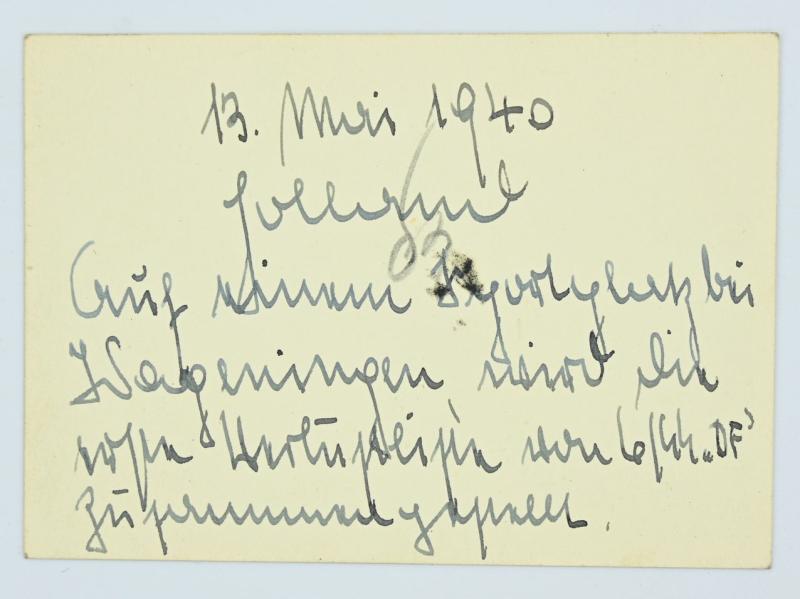 13. Mai 1940
Holland
Auf einem Sportplatz bei
Wageningen wird die
erste Verlustliste von 6/SS „DF“
zusammengestellt.